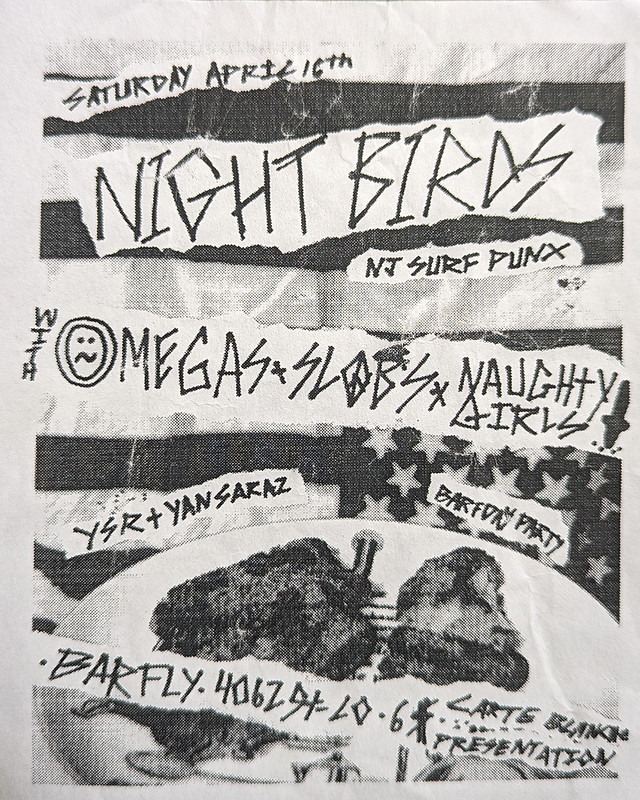 SATURDAY APRIL 16th
NIGHT BIRDS
NJ SURF PUNX
WITH
OMEGAS * SLOBS * NAUGHTY
GIRLS...
YSR + YAN SARAZ
BARTDAY PARTY
• BARFLY • 4062 St-LO • 6$
CARTE BLANCHE
PRESENTATION